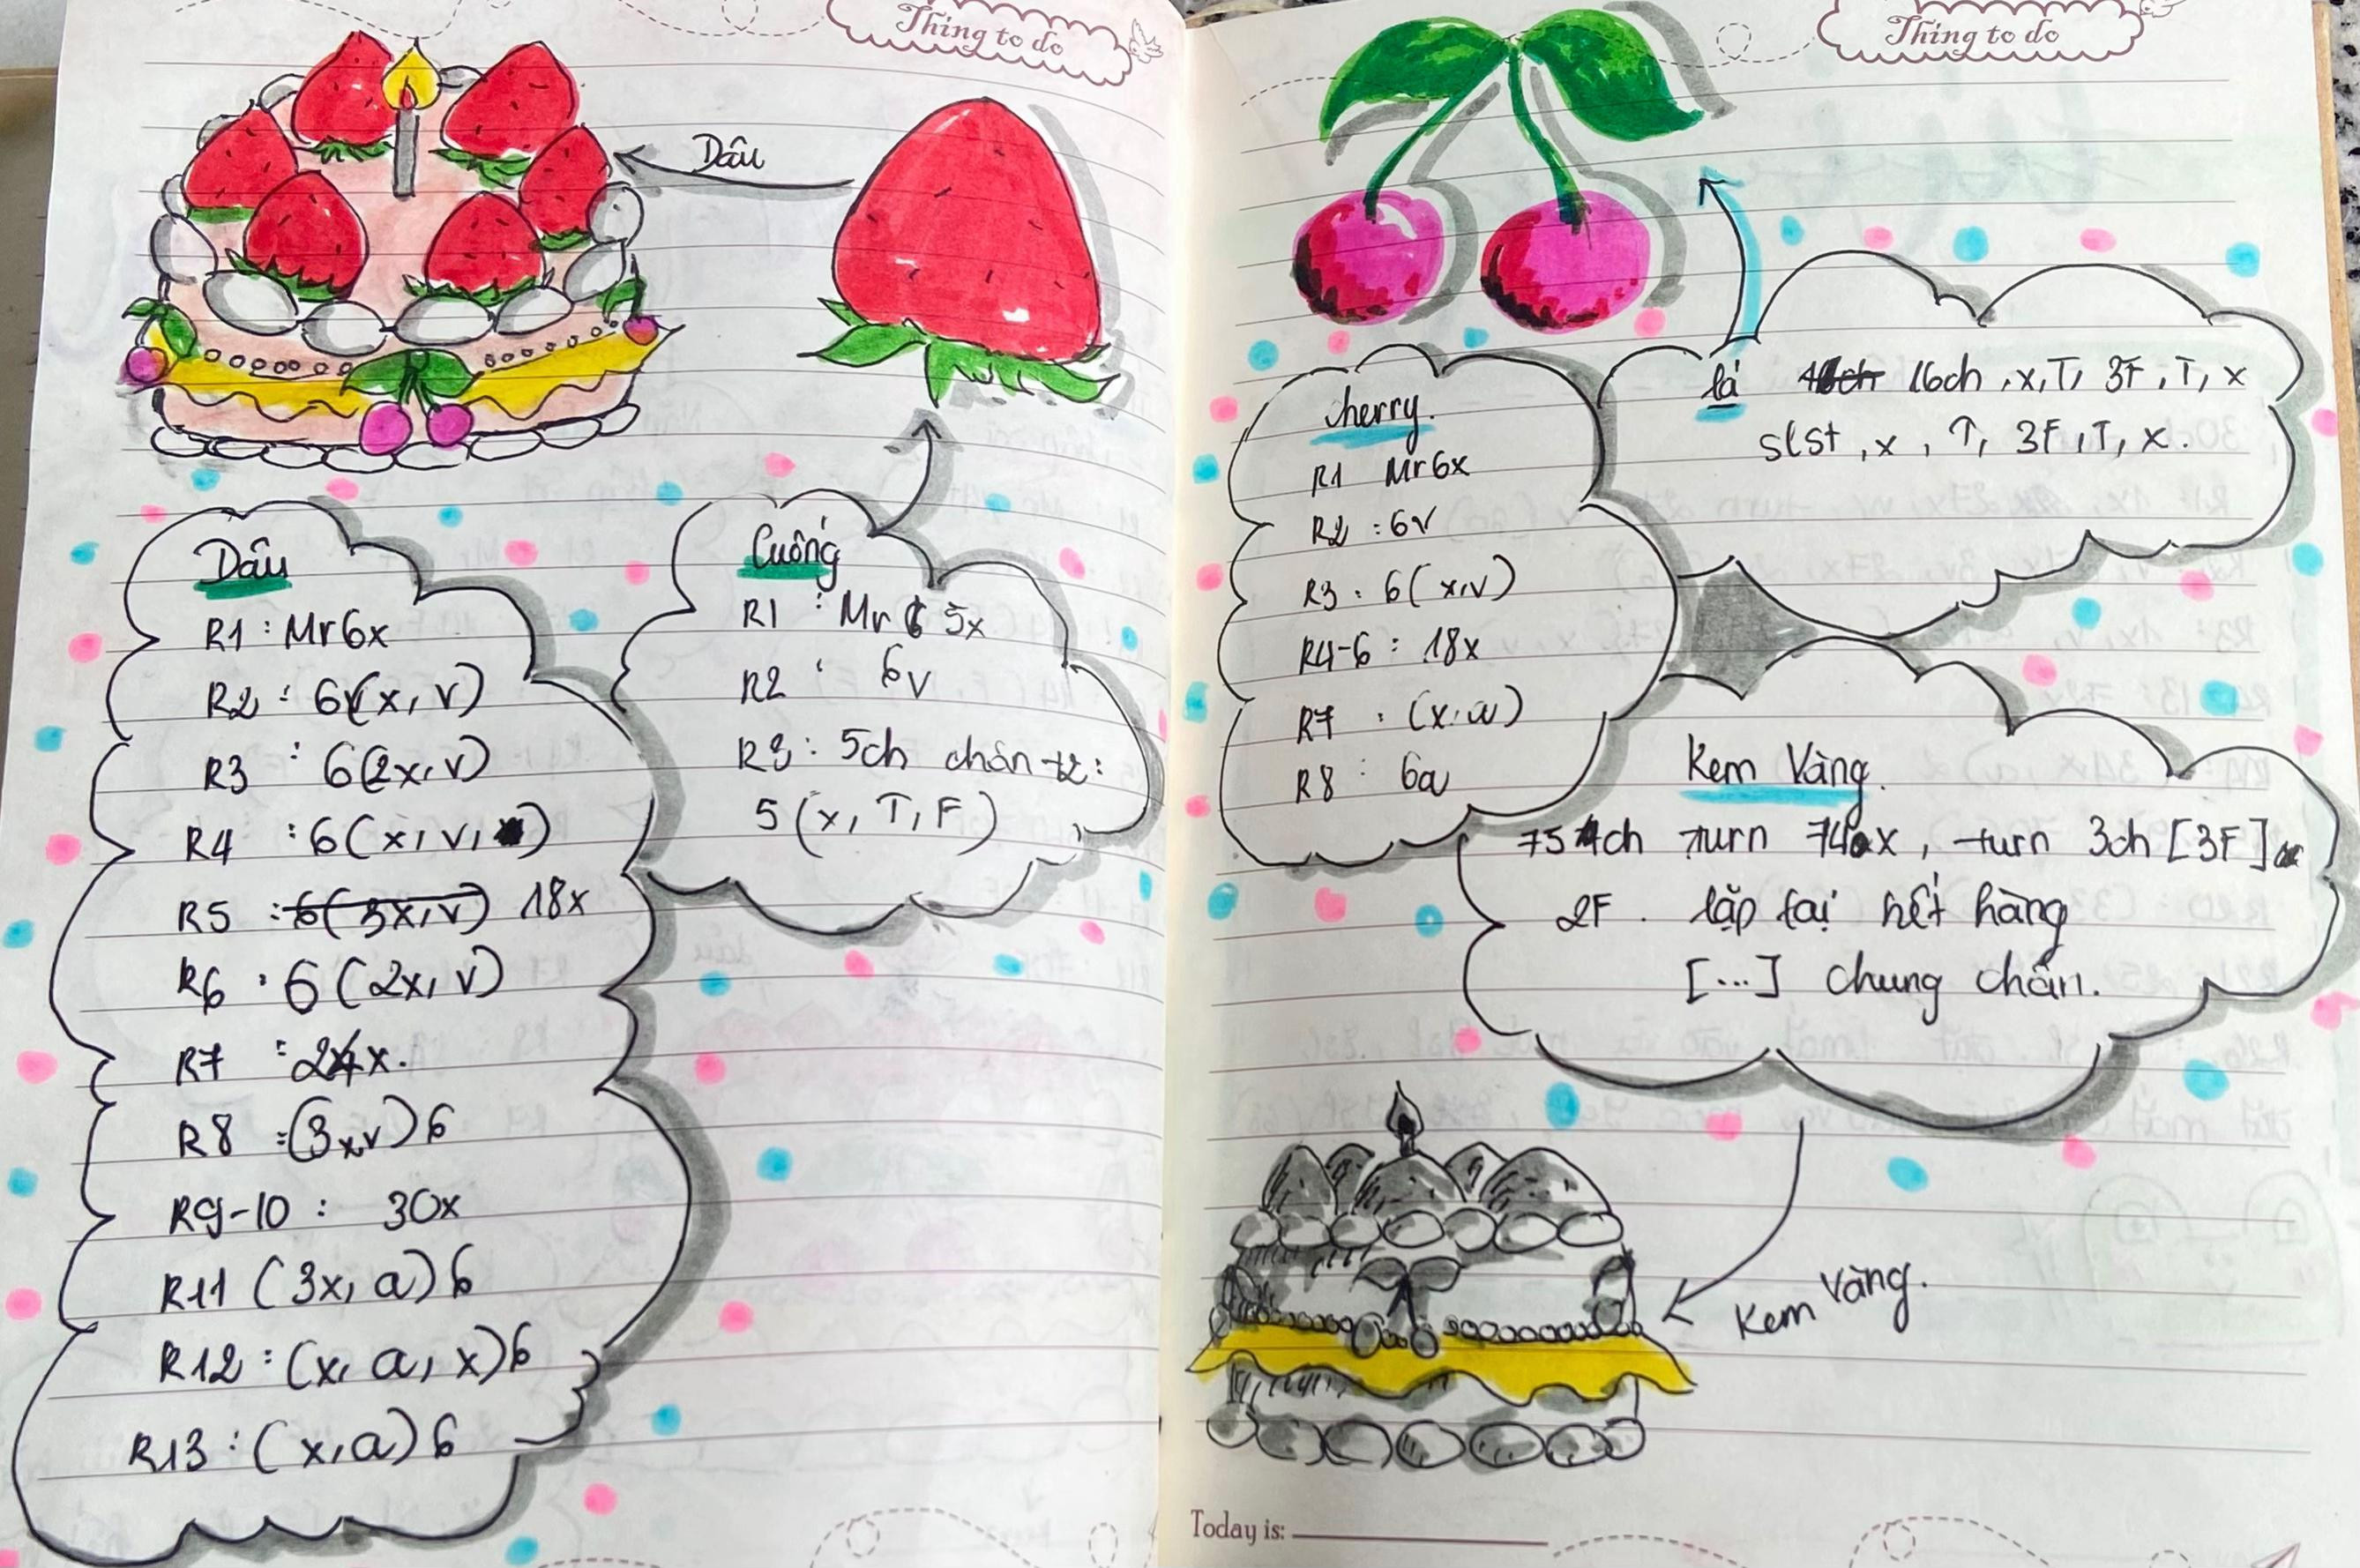 Thing to do
Dâu
Dâu
R1 : Mr 6x
R2 : 6(x, v)
R3 : 6(2x, v)
R4 : 6(x, v, )
R5 : 6(3x, v) 18x
R6 : 6 (2x, v)
R7 : 24x.
R8 : (3x, v) 6
R9-10 : 30x
R11 (3x, a) 6
R12 : (x, a, x) 6
R13 : (x, a) 6
Cuống
R1 : Mr 5x
R2 : 6v
R3 : 5ch chân t2 :
5 (x, T, F)
Thing to do
lá 16ch 16ch , x, T, 3F, T, x
slst , x , T, 3F, T, x .
cherry.
R1 Mr 6x
R2 : 6v
R3 : 6 (x, v)
R4-6 : 18x
R7 : (x, a)
R8 : 6a
Kem Vàng.
75ch turn 74x , turn 3ch [3F]
2F . lặp lại hết hàng
[...] chung chân.
Kem Vàng.
Today is: